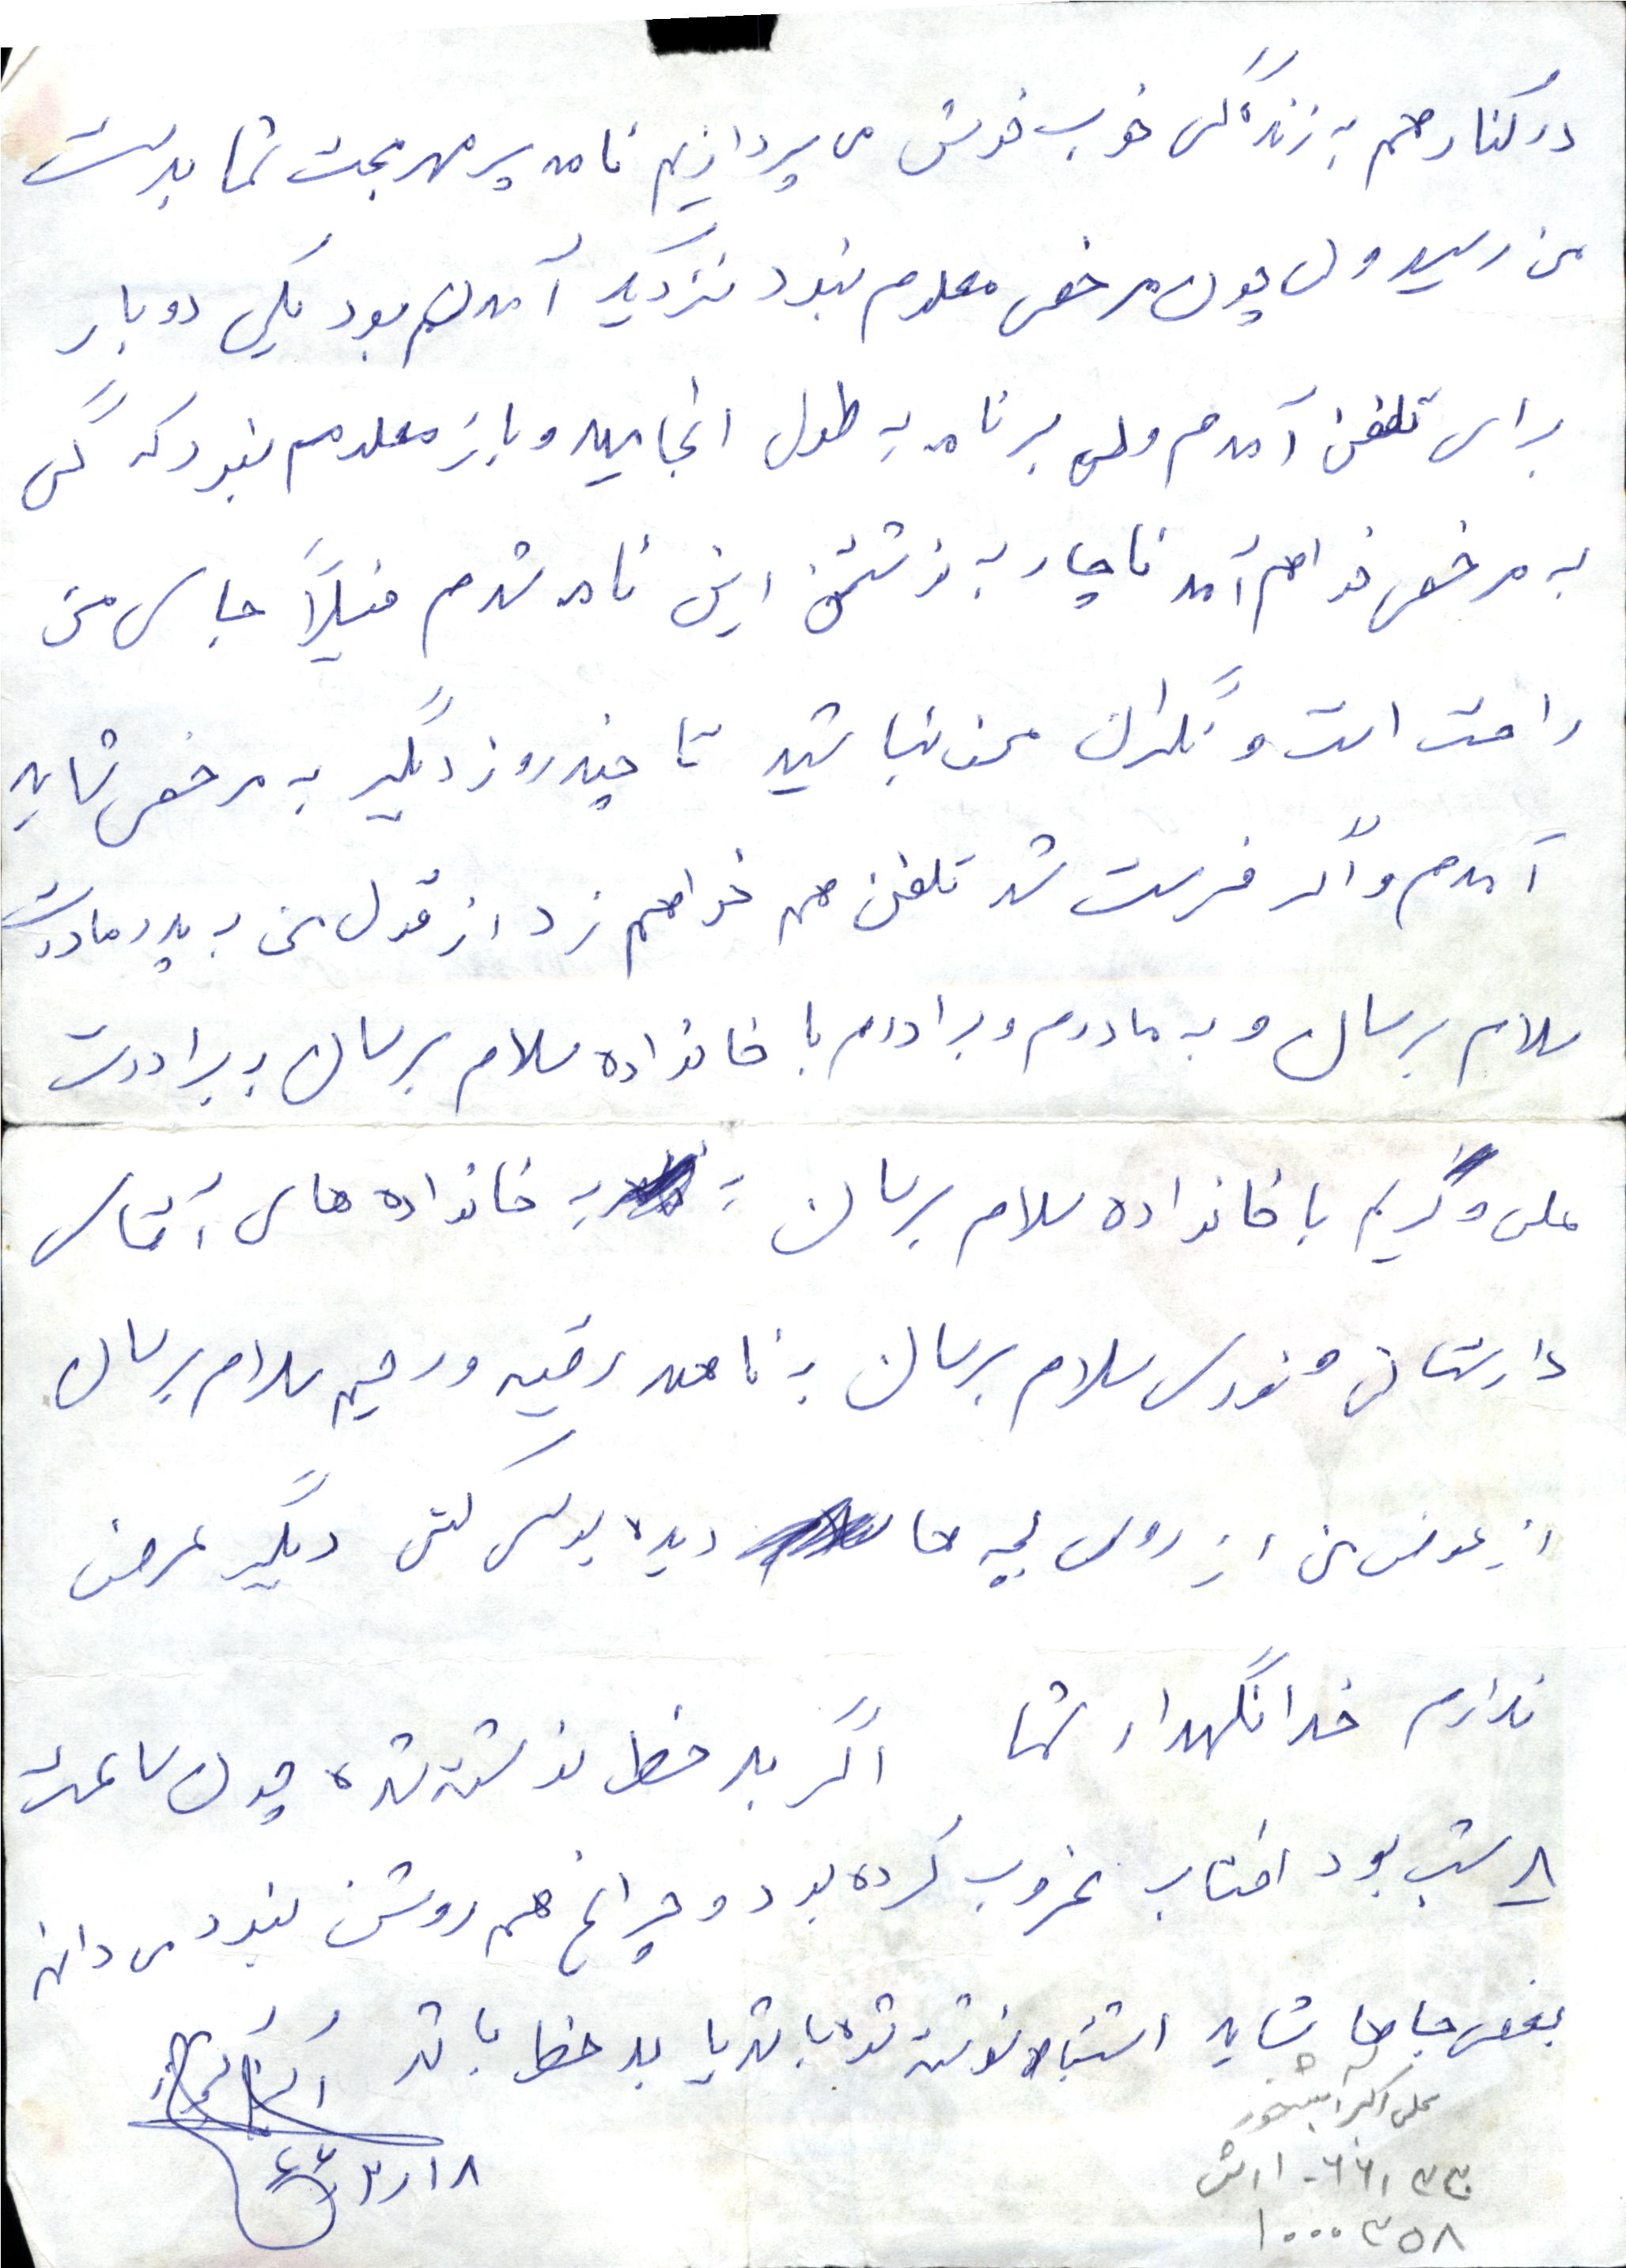 در کنار هم به زندگی خوب خوش می پردازیم نامه پر مهر محبت شما بدست
من رسید ولی چون مرخصی معلوم نبود نزدیک آمدنم بود یکی دو بار
برای تلفن آمدم ولی برنامه به طول انجامید و باز معلوم نبود که کی
به مرخصی خواهم آمد ناچار به نوشتن این نامه شدم فیلاً جای من
راحت است و نگران من نباشید تا چند روز دیگر به مرخصی شاید
آمدم و اگر فرست شد تلفن هم خواهم زد از قول من به پدر مادرت
سلام برسان و به مادرم و برادرم با خانواده سلام برسان به برادرت
علی و کریم با خانواده سلام برسان به خانواده های آقای
دارستانی و نوری سلام برسان به ناهید رقیه و رحیم سلام برسان
از عوض من از روی بچه ها دیده بوسی کنی دیگر عرض
ندارم خدا نگهدار شما اگر بد خط نوشته شده چون ساعت
۸ شب بود افتاب غروب کرده بود و چراغ هم روشن نبود می دانم
بعضی جاها شاید اشتباه نوشته شده باشد یا بد خط باشد
علی اکبر آبشخور
۱۸ ر ۳ ر ۶۶
۳۳۰ ر ۶۶ - ۱ رش
۱۰۰۰۳۵۸